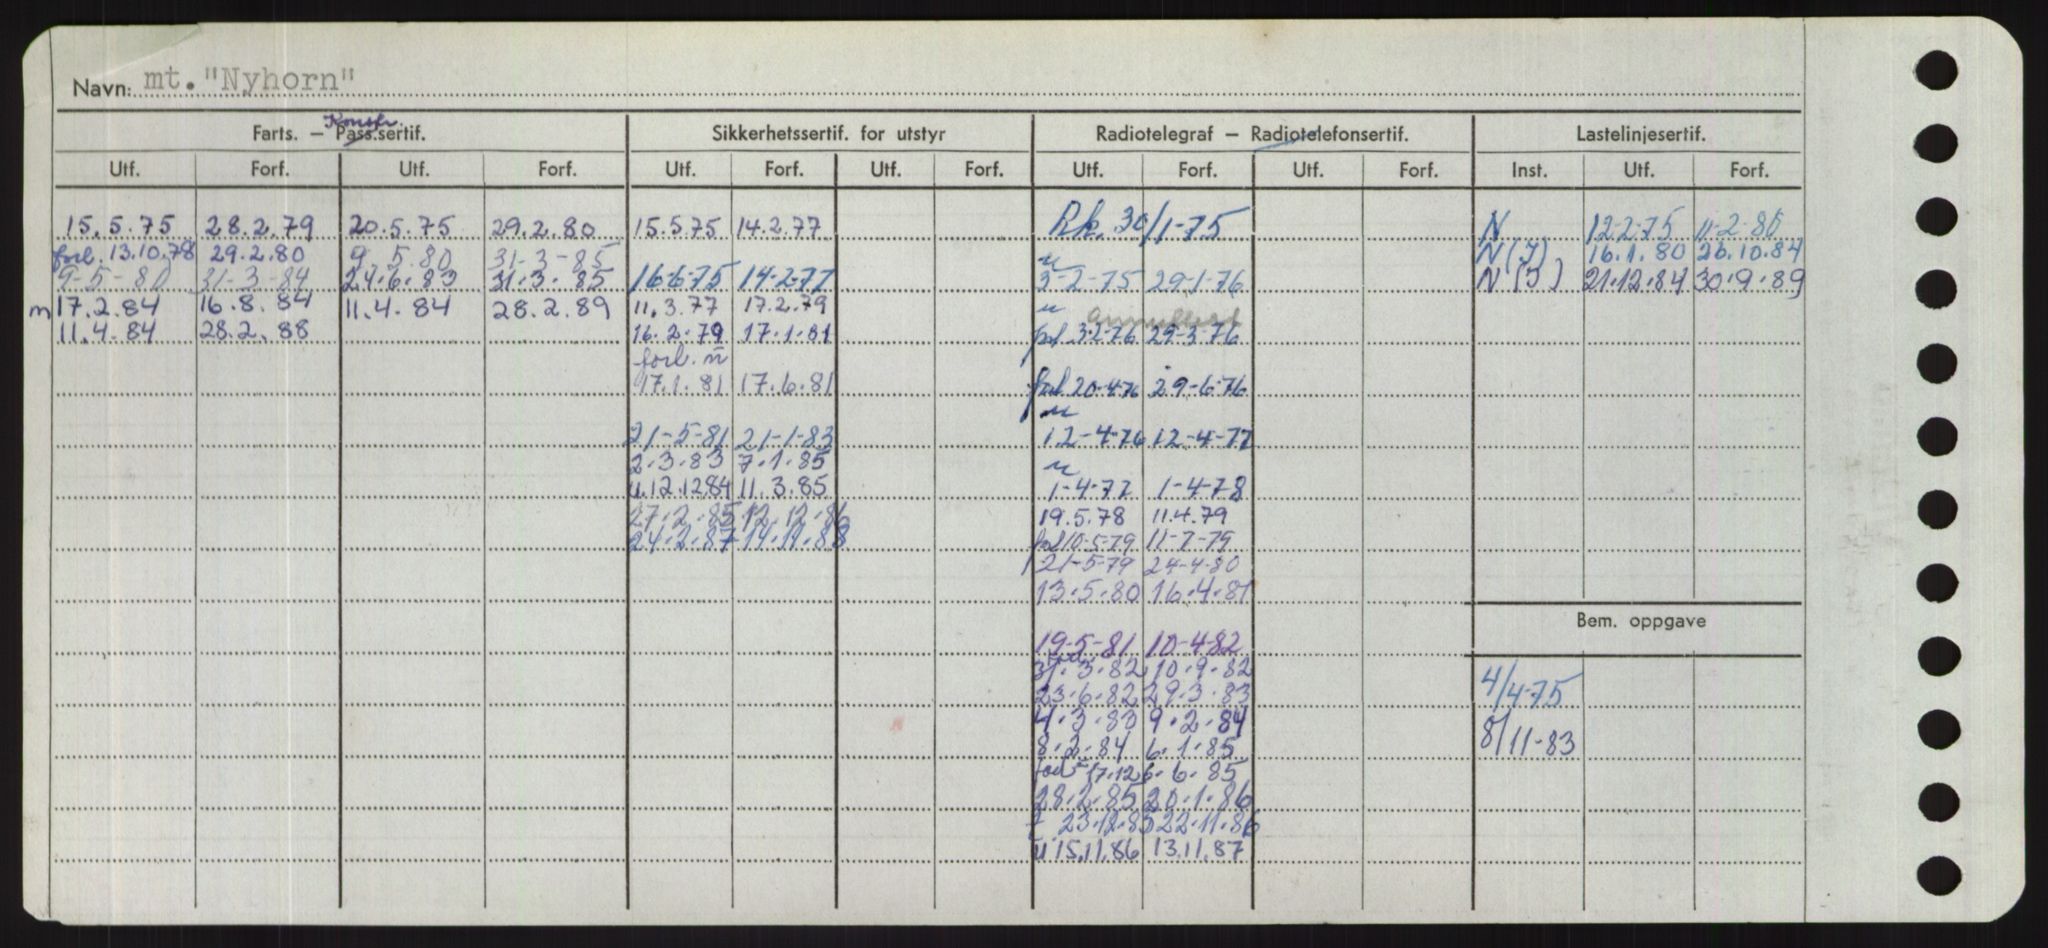 Navn: mt. "Nyhorn"
Farts. — Konstr. Pass.sertif. Sikkerhetssertif. for utstyr Radiotelegraf — Radiotelefonsertif. Lastelinjesertif.
Utf. Forf. Utf. Forf. Utf. Forf. Utf. Forf. Utf. Forf. Utf. Forf. Inst. Utf. Forf.
15.5.75 28.2.79 20.5.75 29.2.80 15.5.75 14.2.77 Rk. 30/1-75 N 12-2-75 11-2-80
forl. 13.10.78 29.2.80 9.5.80 31-3-85 u N(J) 16.1.80 26.10.84
9-5-80 31-3-84 24.6.83 31.3.85 16-6-75 14-2-77 3-2-75 29-1-76 N(J) 21.12.84 30.9.89
m 17.2.84 16.8.84 11.4.84 28.2.89 11.3.77 17.2.79 u annullert
11.4.84 28.2.88 16.2.79 17.1.81 forl 3-2-76 29-3-76
forl. ū
17.1.81 17.6.81 forl 20-4-76 29-6-76
u
21-5-81 21-1-83 12-4-76 12-4-77
2.3.83 7.1.85 u
u.12.12.84 11.3.85 1-4-77 1-4-78
27.2.85 12.12.86 19.5.78 11.4.79
24.2.87 14.11.88 forl 10-5-79 11-7-79
21-5-79 24-4-80
13.5.80 16.4.81
Bem. oppgave
19-5-81 10-4-82
31.3.82 10.9.82
23.6.82 29.3.83 4/4-75
4.3.83 9.2.84
8.2.84 6.1.85 8/11-83
forl 17.12 6.6.85
28.2.85 20.1.86
f 23.12.85 22.11.86
ū 15.11.86 13.11.87